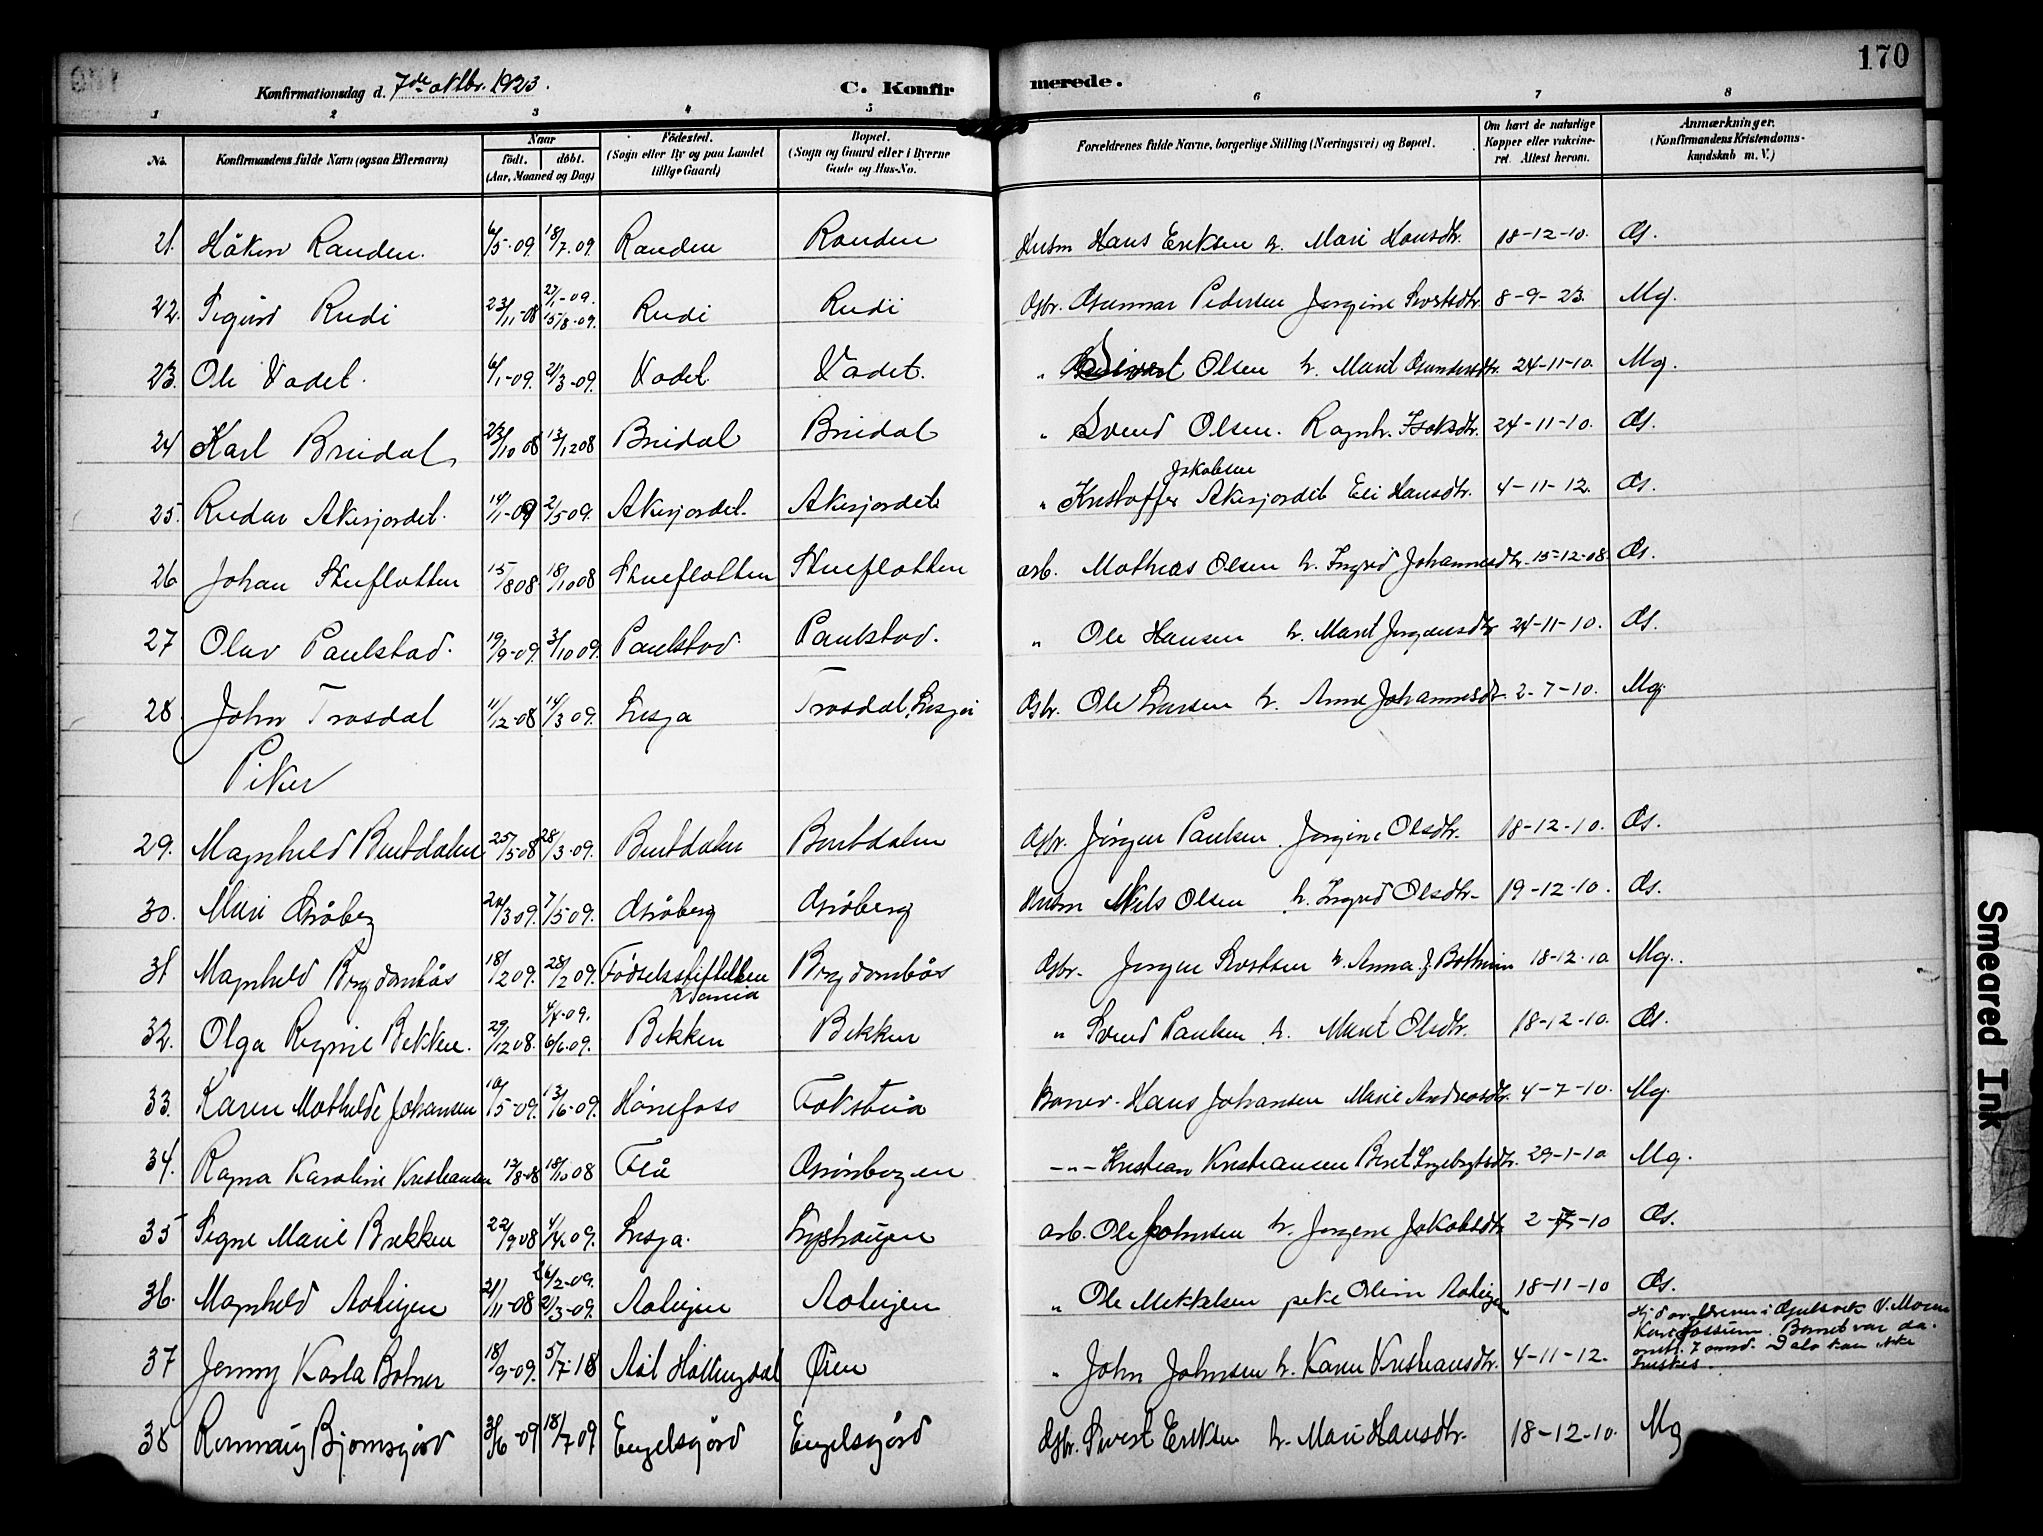 170
Konfirmationsdag d. 7de oktbr. 1923.
C. Konfirmerede.
1 2 3 4 5 6 7 8
No.
Konfirmandens fulde Navn (ogsaa Efternavn)
Naar
født. døbt.
(Aar, Maaned og Dag)
Fødested.
(Sogn eller By og paa Landet
tillige Gaard)
Bopæl.
(Sogn og Gaard eller i Byerne
Gade og Hus-No.
Forældrenes fulde Navne, borgerlige Stilling (Næringsvei) og Bopæl.
Om havt de naturlige
Kopper eller vakcine-
ret. Attest herom.
Anmærkninger.
(Konfirmandens Kristendoms-
kundskab m. V.)
21. Håkon Randen. 6/5-09. 18/7.09. Randen Randen Husm Hans Eriksen h. Mari Hansdtr. 18-12-10. G.
22. Sigurd Rudi 23/11-08 27/1-09. 15/8-09. Rudi Rudi Gbr. Gunnar Pedersen Jørgine Sivertsdtr. 8-9-23. Mg.
23. Ole Vadet. 6/1-09. 21/3-09. Vadet. Vadet. " Sivert Olsen h. Marit Gundersdtr. 24-11-10. Mg.
24 Karl Breidal 23/10 08 13/12 08 Breidal Breidal " Svend Olsen. Ragnh. Isaksdtr. 24-11-10. G.
25. Reidar Akesjordet. 14/1-09 2/5 09. Akesjordet. Akesjordet " Kristoffer Jakobsen Akesjordet Eli Hansdtr. 4-11-12. G.
26 Johan Stueflotten 15/8 08 18/10 08 Stueflotten Stueflotten arb. Mathias Olsen h. Ingrid Johannesdtr. 15-12-08. G.
27 Olav Paulstad. 19/9-09. 3/10 09. Paulstad. Paulstad. " Ole Hansen h. Marit Jørgensdtr 24-11-10. G.
28 John Trosdal 11/12-08 14/3 09. Lesja Trosdal, Lesja Gbr. Ole Larsen h. Anne Johannesdtr. 2-7-10. Mg.
Piker
29. Magnhild Buutdalen 25/5 08 28/3-09. Buutdalen Buutdalen Gbr. Jørgen Paulsen. Jørgine Olsdtr. 18-12-10. G.
30. Mari Gråberg 24/3 09. 7/5 09. Gråberg Gråberg Husm Nils Olsen h. Ingrid Olsdtr. 19-12-10. G.
31 Magnhild Brydombås 18/2 09. 28/2 09. Fødselsstiftelsen Kr.ania Brydombås Gbr. Jørgen Sivertsen h. Anna J. Bottheim 18-12-10 Mg.
32. Olga Regine Bekken. 29/12 08. 4/4-09. 6/6-09. Bekken Bekken " Svend Paulsen h. Marit Olsdtr. 18-12-10. G.
33. Karen Mathilde Johansen 10/5-09. 13/6-09. Hønefoss Fokstua Banev. Hans Johansen Marie Andreasdtr. 4-7-10. Mg.
34. Ragna Karoline Kristiansen 12/8-08 18/10 08 Flå Grønbogen -"- Kristian Kristiansen Beret Ingebrigtsdtr. 29-1-10 Mg.
35 Signe Marie Brekken 22/9 08 4/4 09. Lesja. Lyshaugen arb. Ole Johnsen h. Jørgine Jakobsdtr 2-7-10 G.
36. Magnhild Aateigen 21/11-08 26/2-09. 21/3-09. Aateigen Aateigen " Ole Mikkelsen pike Olava Aateigen 18-11-10 G.
37 Jenny Karla Botner 18/9-09. 5/7-18 Aal Hallingdal Øien " John Johnsen h. Karen Kristiansdtr. 4-11-12. Hj.d av
Kari Fossum. Barnet var da
omtr. 7 mnd. Dato kan ikke
huskes.
38 Rønnaug Bjørnsgård 3/6-09 18/7 09 Engelsgård Engelsgård Gbr. Sivert Eriksen h. Mari Hansdtr. 18-12-10. Mg
Smeared Ink